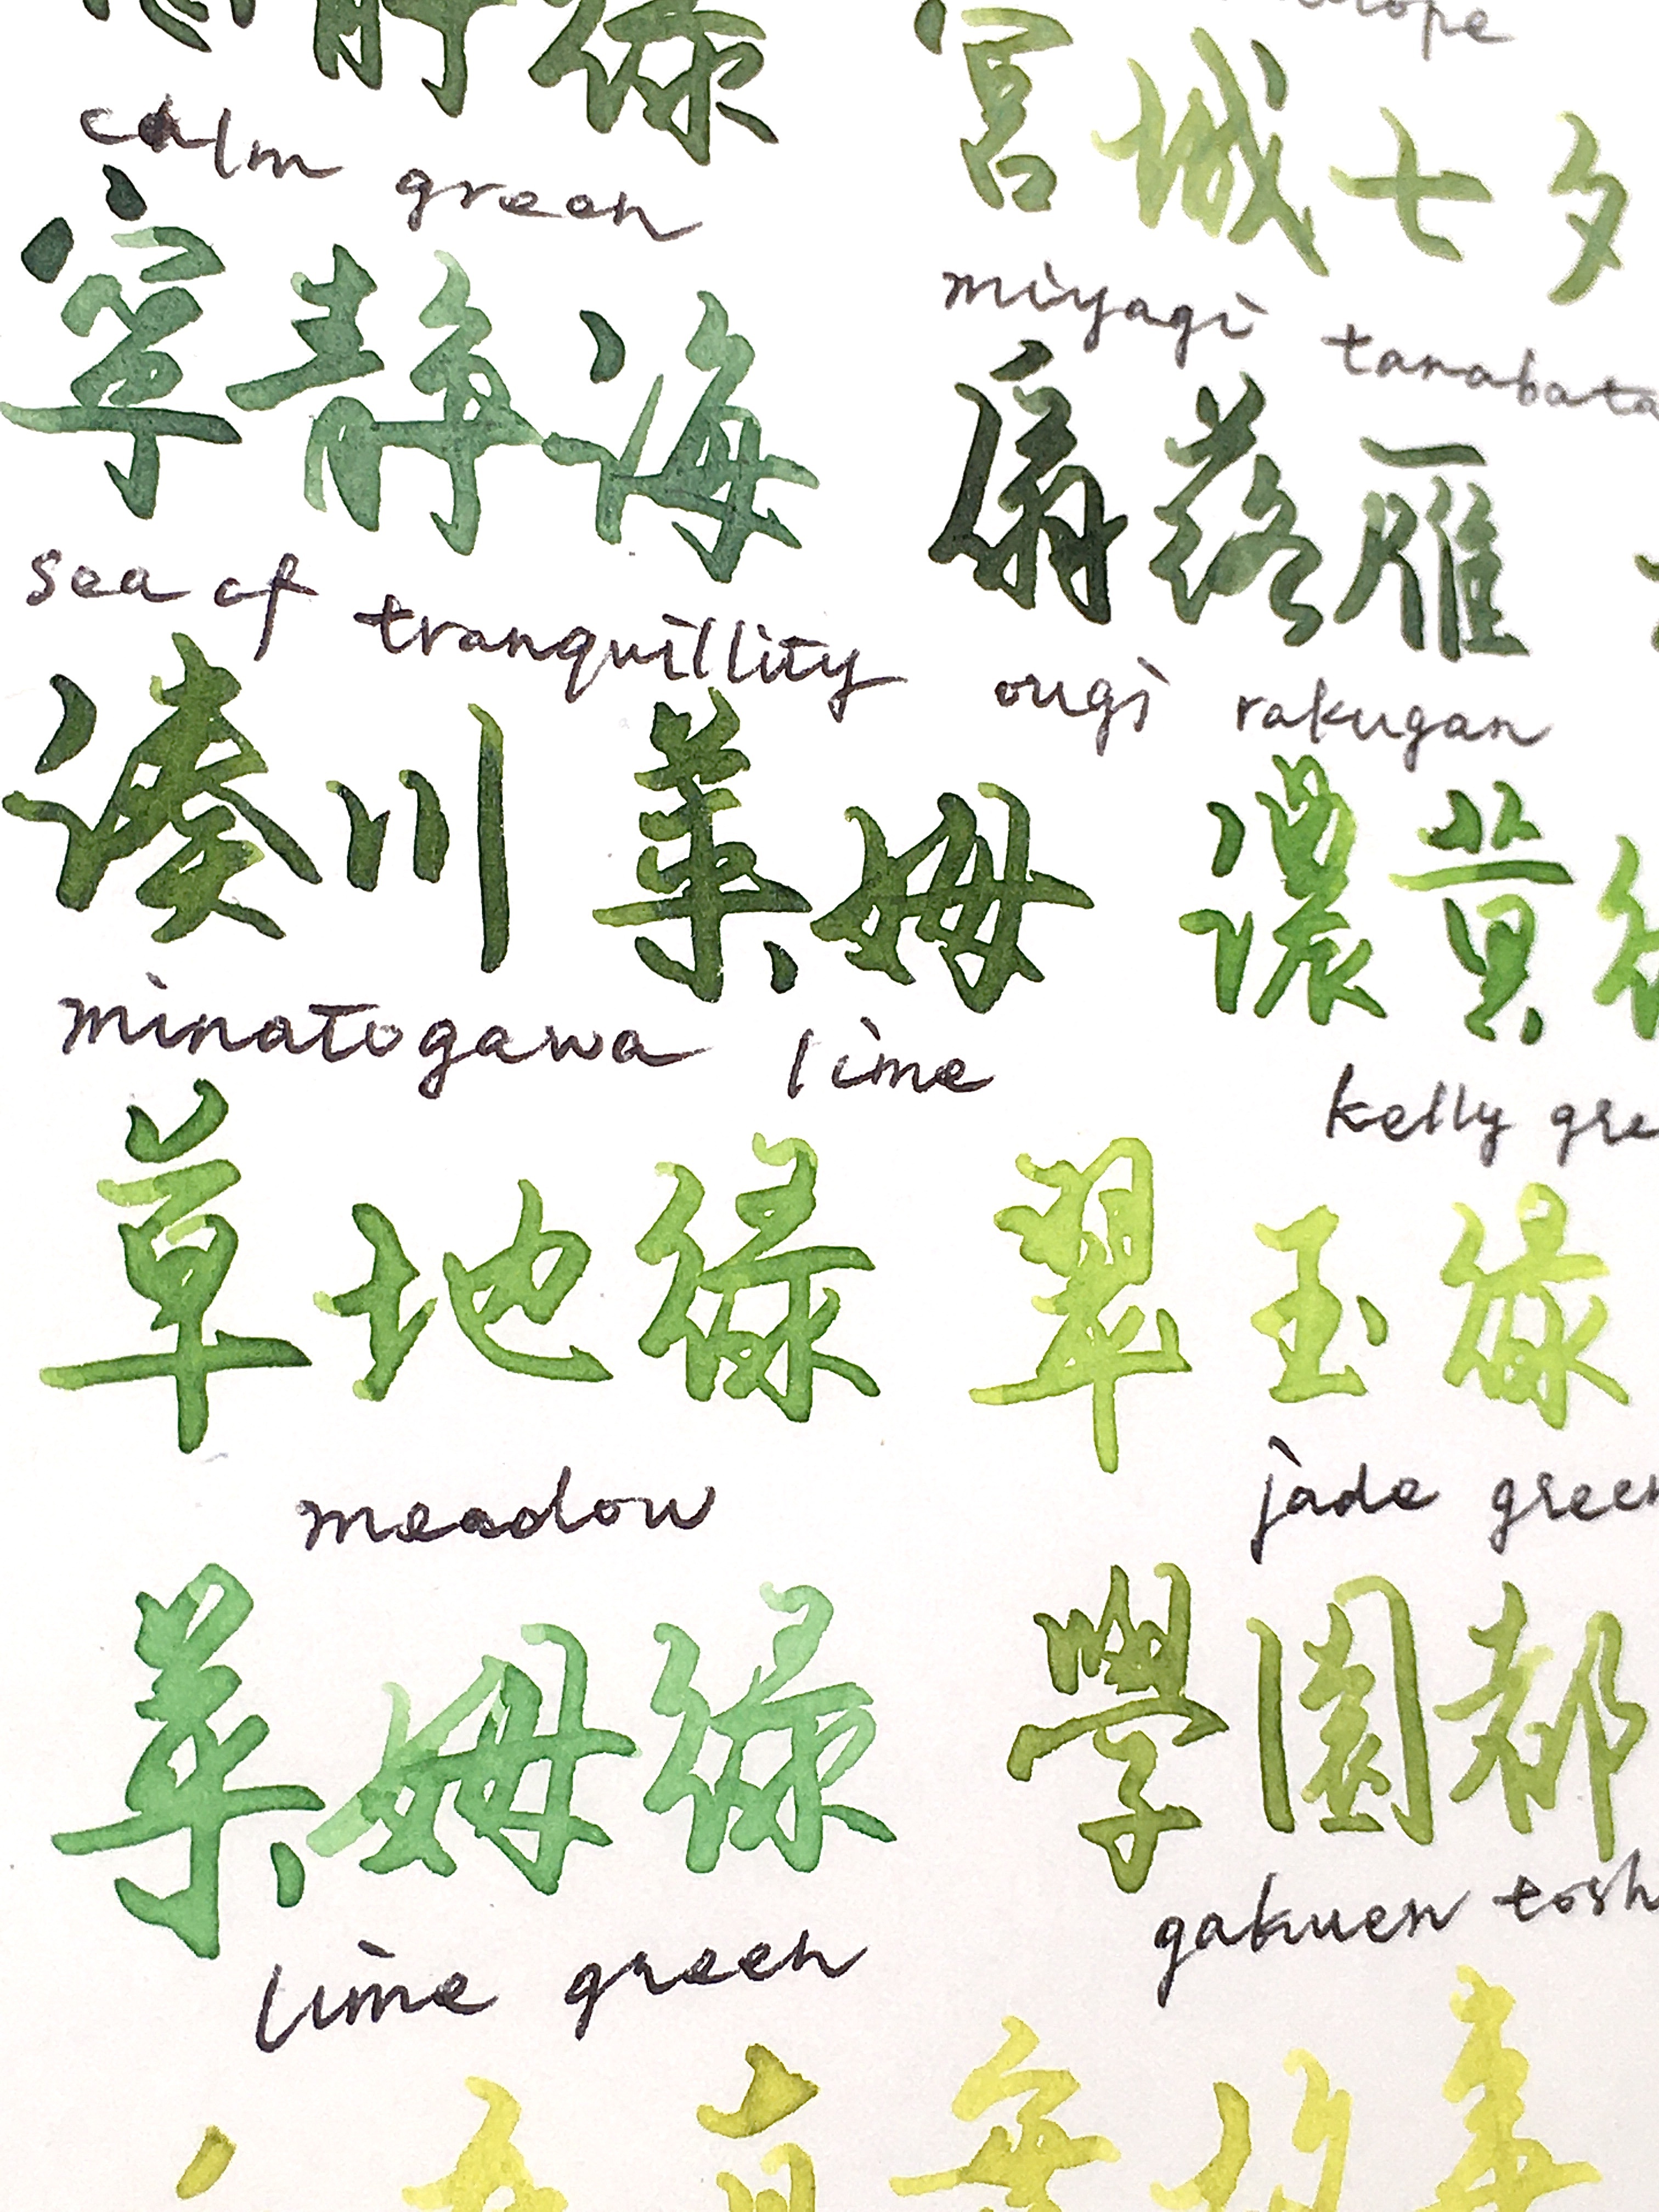 綠
calm green
宮城七夕
miyagi tanabata
寧靜海
sea of tranquillity
扇落雁
ougi rakugan
湊川 萊姆
minatogawa lime
濃黃綠
kelly gre
草地綠
meadow
翠玉綠
jade green
萊姆綠
lime green
學園都
gakuen tosh